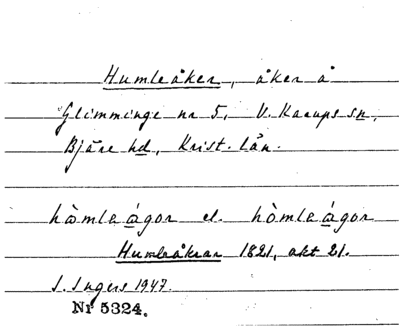 Humleåker, åker å
Glimminge nr 5, V. Karups sn,
Bjäre hd, Krist. län.
hòmleágor el. hòmleágor
Humleåkrar 1821, akt 21.
S. Ingers 1947.
Nr 5324.